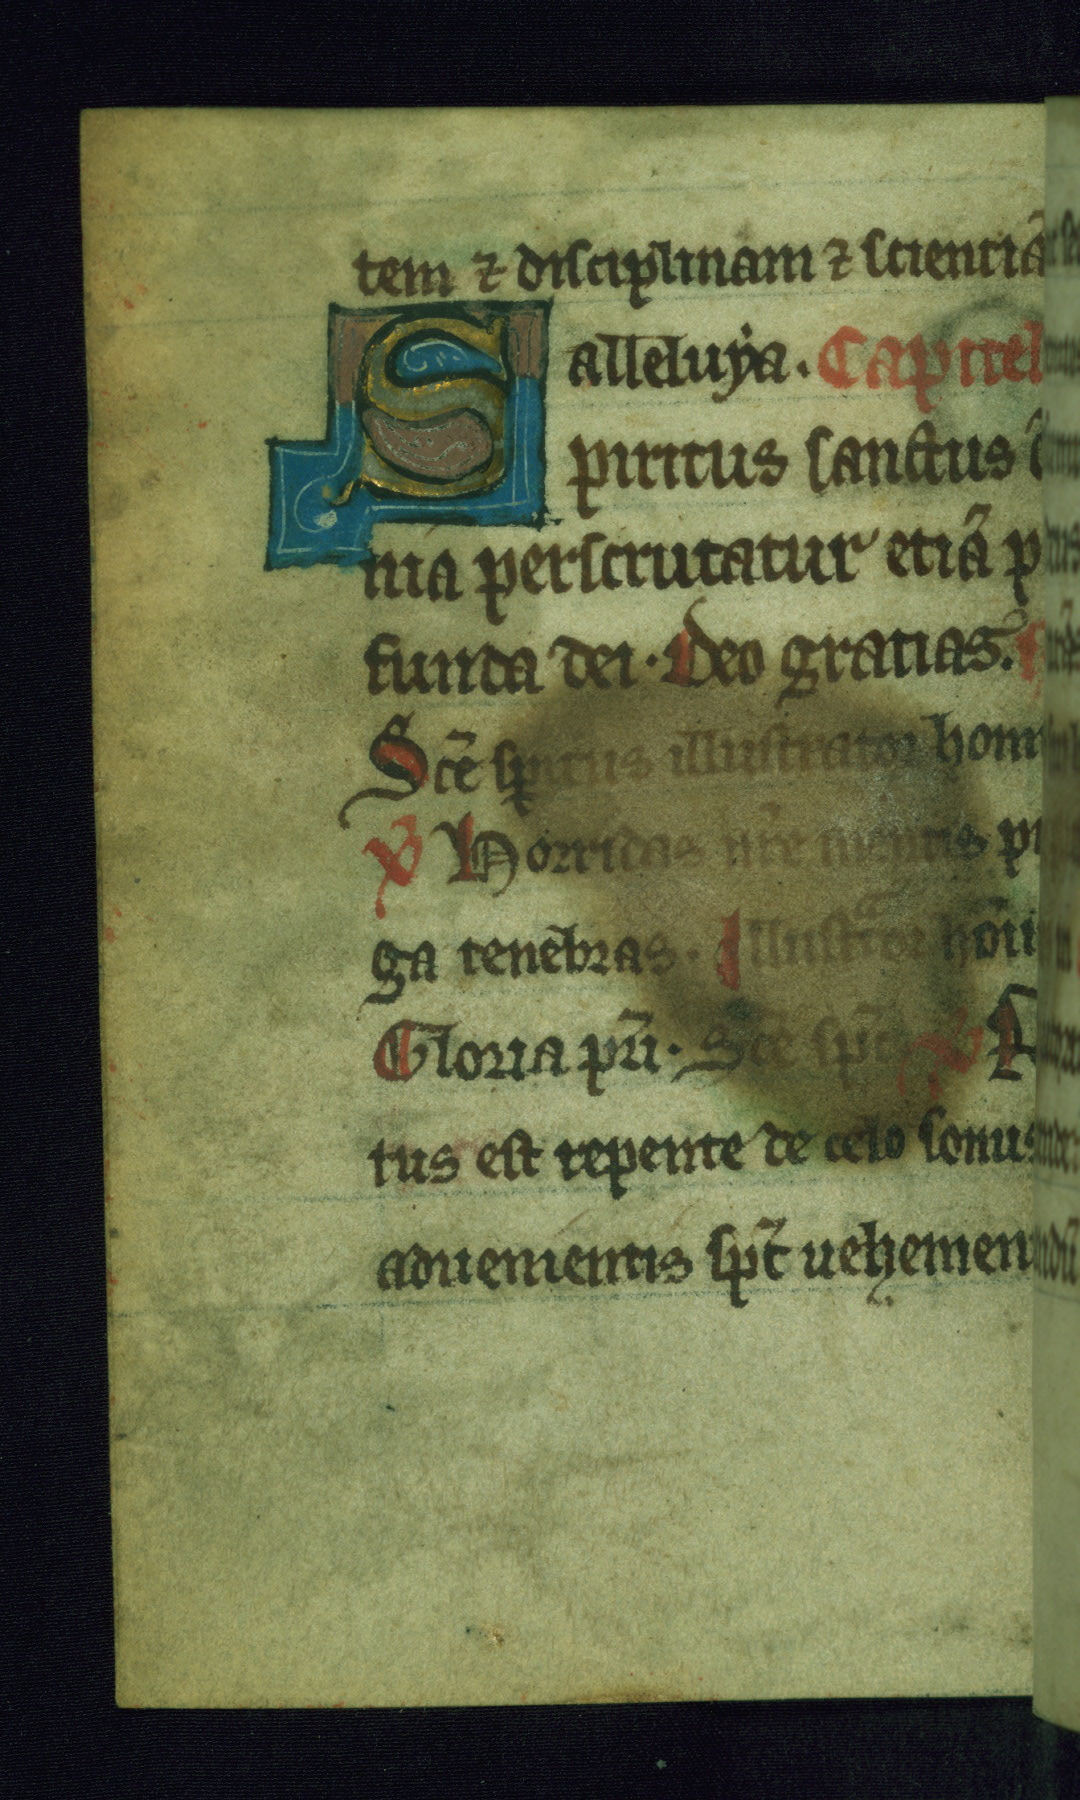 tem ⁊ disciplinam ⁊ scientiã
alleluya. Capitel
Spiritus sanctus
nia perscrutatur etiã p
funda dei. Deo gratias.
Scẽ spiritus illustrator hom
℣ Horridas nr̃e mentis
ga tenebras. Illustrator
Gloria pr̃i. Scẽ spũ ℣ A
tus est repente de celo sonus
aduenientis spũ uehemen